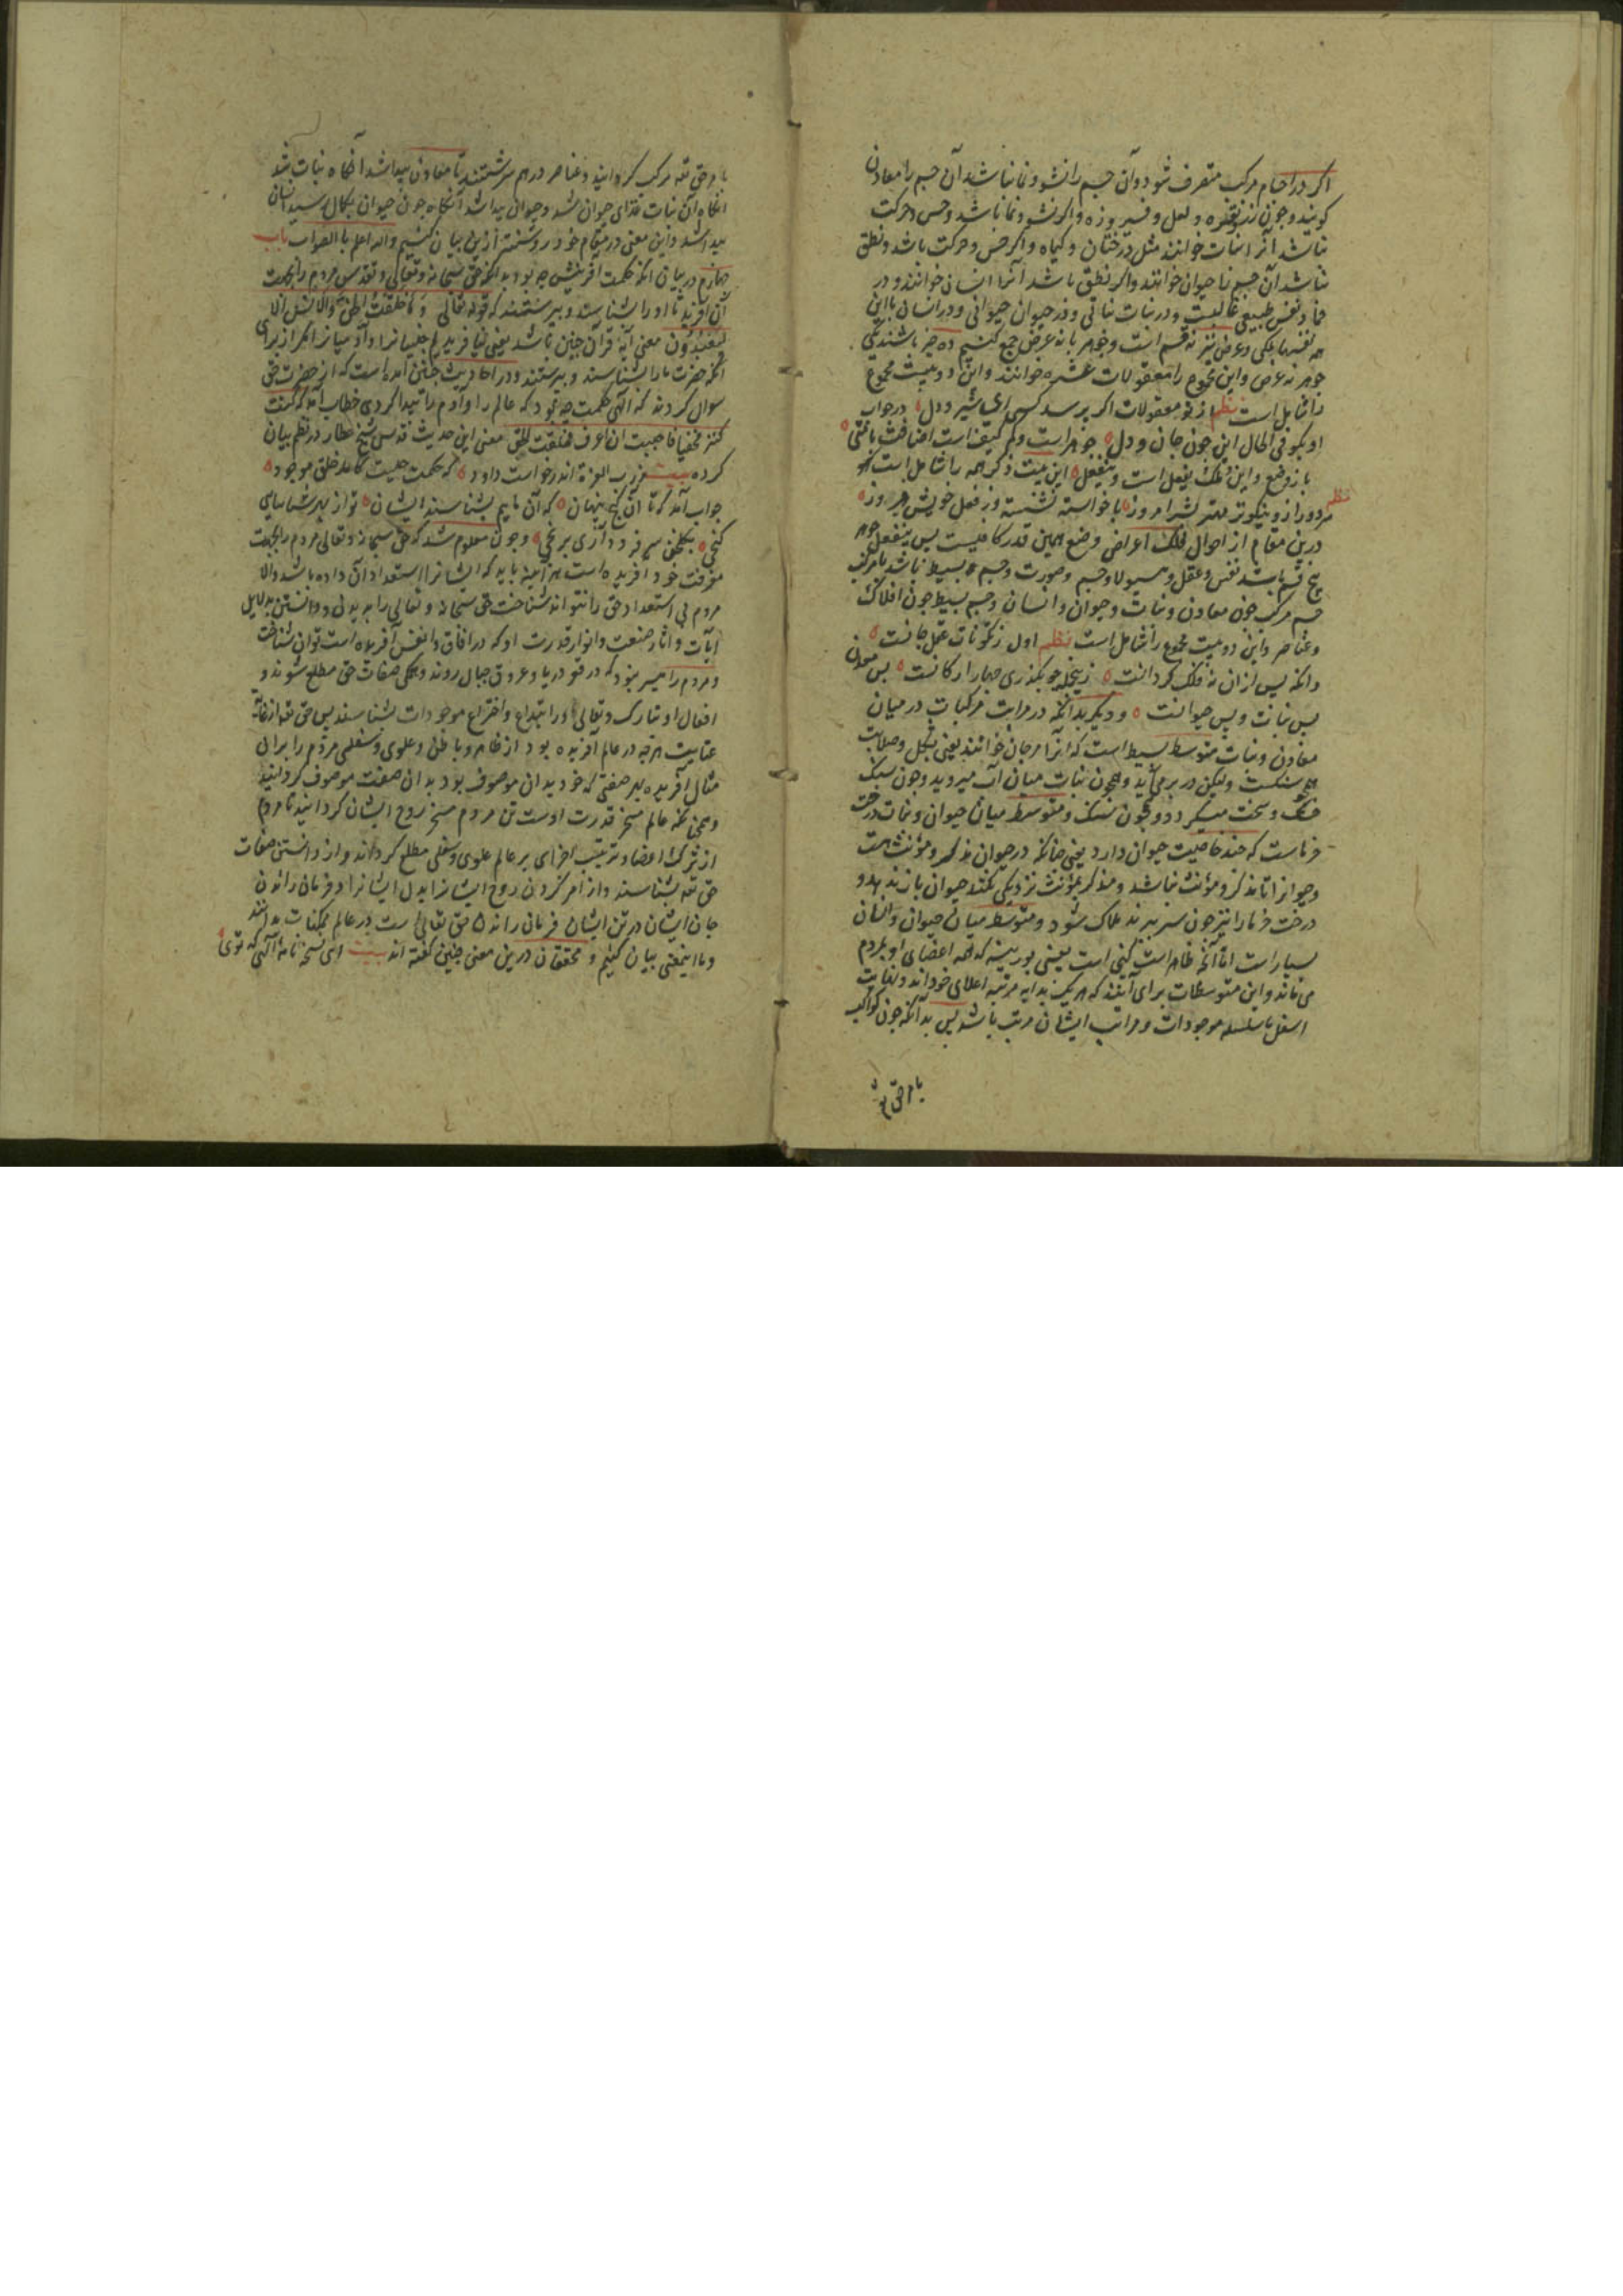 اکر در اجسام مرکب متصرف شود و آن جسم را نشو و نما نباشد آن جسم را معادن
کویند و چون زر و نقره و لعل و فیروزه و اکر نشو و نما باشد و حس و حرکت
نباشد آنرا نبات خوانند مثل درختان و کیاه و اکر حس و حرکت باشد و نطق
نباشد آن جسم را حیوان خوانند و اکر نطق باشد آنرا انسان خوانند و در
نفس طبیعی غالبست و در نبات نباتی و در حیوان حیوانی و در انسان با این
همه نفسها ملکی و عرض نیز نه قسم است و جوهر با نه عرض جمع کنیم ده چیز باشند یکی
جوهر نه عرض و این مجموع را معقولات عشره خوانند و این دو بیت مجموع
را شامل است نظم از تو معقولات اکر پرسد کسی ای شیر دل در جواب
او بکو فی الحال این چون جان و دل جوهر است و کم کیف است اضافت با متی
باز وضع و این و ملک یفعل است و ینفعل این بیت ذکر همه را شامل است
نظم
مرد دراز و نیکو مهتر بشهر امروز با خواسته نشسته وز فعل خویش فیروز
درین مقام از احوال فلک اعراض وضع همین قدر کافیست پس جوهر
پنج قسم باشد نفس و عقل و هیولا و جسم و صورت و جسم بسیط باشد یا مرکب
جسم مرکب چون معادن و نبات و حیوان و انسان و جسم بسیط چون افلاک
و عناصر و این دو بیت مجموع را شامل است نظم اول ز مکونات عقل و جانست
وانکه پس ازان نه فلک کردانست زینجمله چو بکذری چهار ارکانست پس معدن
پس نبات و پس حیوانست و دیکر بدانکه در مراتب مرکبات در میان
معادن و نبات متوسط بسیط است که آنرا مرجان خوانند یعنی بشکل و صلابت
همچو سنکست ولیکن در بر می آید و همچون نبات میان آب میروید و چون سنک
خشک و سخت میکردد و همچون سنک و متوسط میان حیوان و نبات درخت
خرماست که چند خاصیت حیوان دارد یعنی چنانکه در حیوان مذکر و مؤنث هست
و حیوان را تا مذکر و مؤنث نباشد و مذکر بمؤنث نزدیکی نکند حیوان باز ندهد و
درخت خرما را نیز چون سر ببرند هلاک شود و متوسط میان حیوان و انسان
بسیار است اما آنچه ظاهر است کپی است یعنی بوزینه که همه اعضای او بمردم
می ماند و این متوسطات برای آنند که هر یک بدایه مرتبه اعلای خوداند و نهایت
اسفل تا سلسله موجودات و مراتب ایشان مرتب باشد پس بدانکه چون کواکب
بامر حق تعه
بامر حق تعه مرکب کردانید و عناصر در هم سرشتند تا معادن پیدا شد آنکاه نبات شد
انکاه آن نبات غذای حیوان شد و حیوان پیدا شد آنکاه چون حیوان بکمال رسید انسان
پیدا شد و این معنی در مقام خود روشنتر ازین بیان کنیم والله اعلم بالصواب باب
چهارم در بیان آنکه حکمت آفرینش چه بود بدانکه حق سبحانه و تعالی و تقدس مردم را بجهت
آن آفرید تا او را شناسند و بپرستند که قوله تعالی و ما خلقت الجن و الانس الا
لیعبدون معنی آیه قرآن چنین باشد یعنی نیافریدم جنیانرا و آدمیانرا مکر از برای
آنکه حضرت ما را بشناسند و بپرستند و در احادیث چنین آمده است که از حضرت حق
سوال کردند که الهی حکمت چه بود که عالم را و آدم را پیدا کردی خطاب آمد که کنت
کنزا مخفیا فاحببت ان اعرف فخلقت الخلق معنی این حدیث قدسی شیخ عطار در نظم بیان
کرده بیت ز رب العزة اندر خواست داود که حکمت چیست کآمد خلق موجود
جواب آمد که تا آن کنج پنهان که آن مایم بشناسند ایشان تو از بهر شناسای
کنجی بکلخن سر فرو داری برنجی و چون معلوم شد که حق سبحانه و تعالی مردم را بجهت
معرفت خود افریده است هر آینه باید که ایشانرا استعداد آن داده باشد والا
مردم بی استعداد حق را نتوانند شناخت حق سبحانه و تعالی را بدلایل
آیات و آثار صنعت و انوار قدرت او که در آفاق و انفس آفریده است توان شناخت
و مردم را میسر نبود که در قعر دریا و عروق جبال روند و همکی صفات حق مطلع شوند و
افعال او تبارک و تعالی و را ابتداع و اختراع موجودات بشناسند پس حق تعه از غایة
عنایت هر چه در عالم آفریده بود از ظاهر و باطن و علوی و سفلی مردم را بران
مثال آفریده بهر صفتی که خود بدان موصوف بود بدان صفت موصوف کردانید
و همچنانکه عالم مسخر قدرت اوست تن مردم مسخر روح ایشان کردانید تا مردم
از اعضا و ترتیب اجزای بر عالم علوی و سفلی مطلع کردند و از دانستن صفات
حق تعه بشناسند و از امر کردن روح ایشانرا بدل ایشانرا و فرمان راندن
جان ایشان در تن ایشان فرمان راندن حق تعالی است در عالم ممکنات بدانند
و ما اینمعنی بیان کنیم و محققان درین معنی چنین کفته اند بیت ای نسخه نامه الهی که توئی